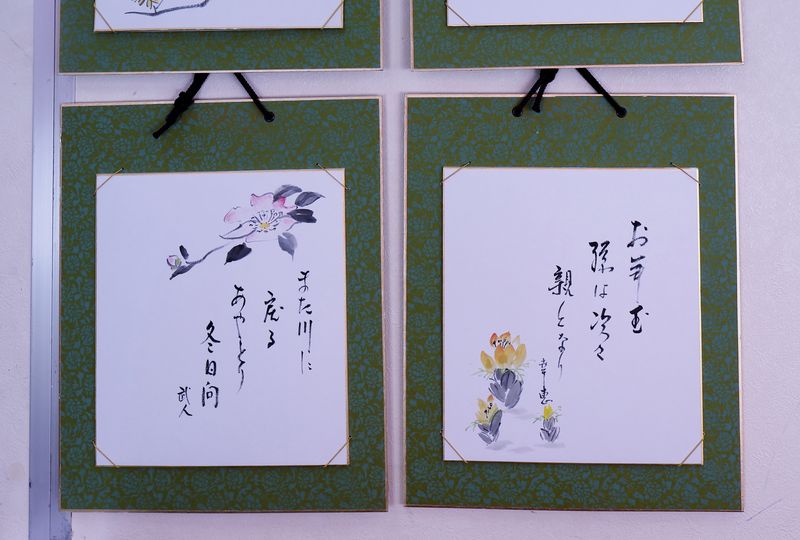 また川に
戻る
あやとり
冬日向
武人
お年玉
孫は次々
親となり
幸恵